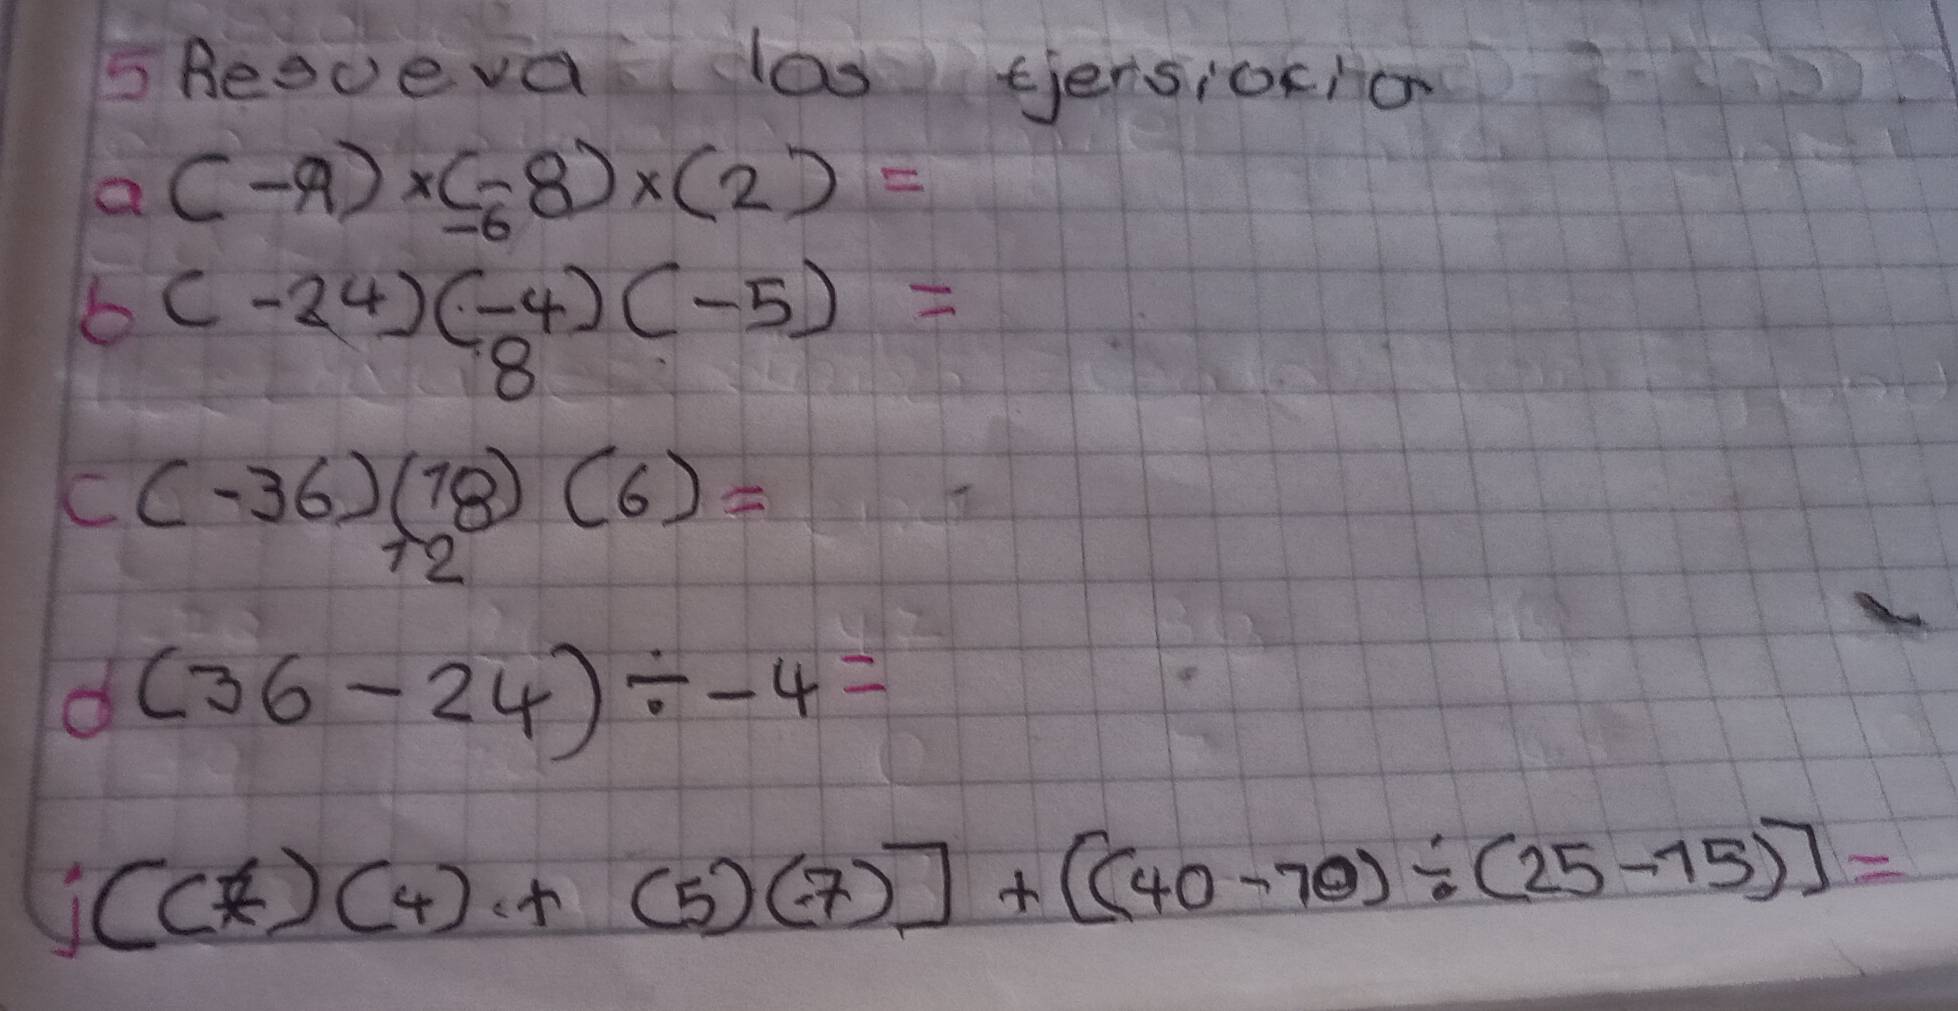 5 Resueva las ejersiocio
a (-9) x (-8) x (2) =
-6
b (-24)(-4)(-5) =
8
c (-36)(18) (6) =
12
d (36 - 24) ÷ -4 =
(4) + (5)(-7)] + [(40 - 10) ÷ (25 - 15)] =